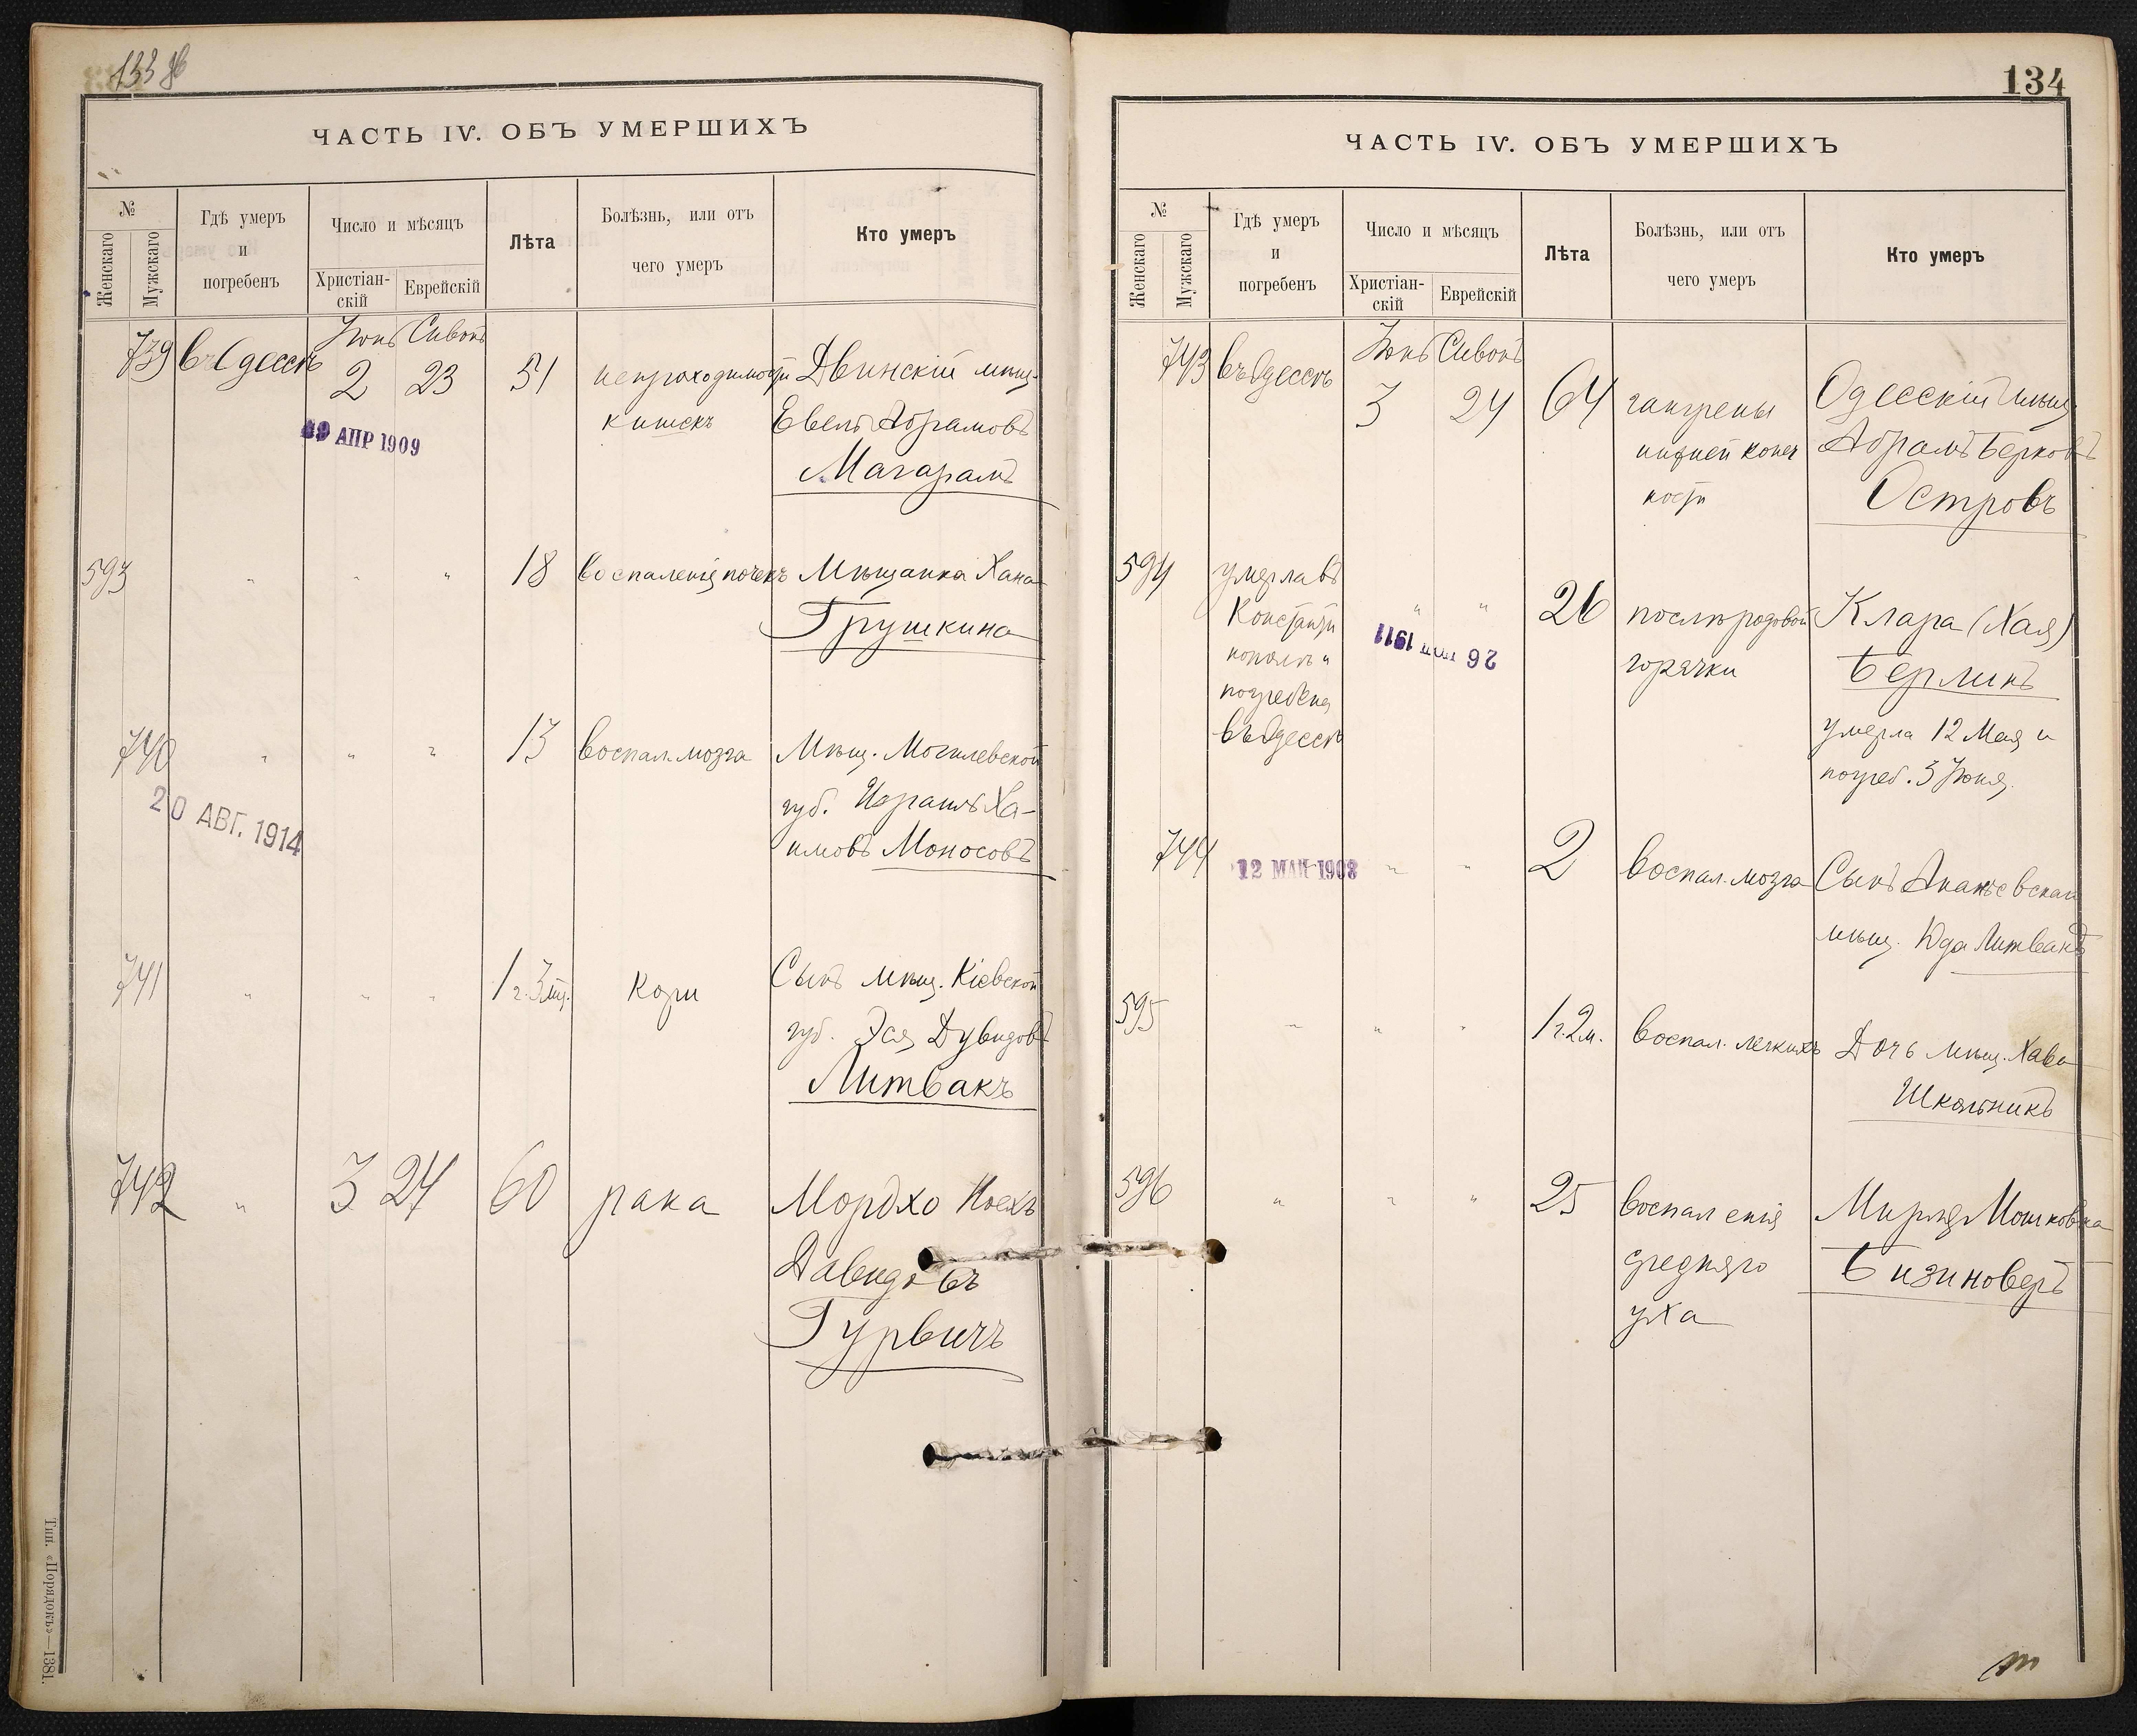 133 об
ЧАСТЬ IV. ОБЪ УМЕРШИХЪ
№
Женскаго
Мужскаго
Гдѣ умеръ
и
погребенъ
Число и мѣсяцъ
Христіан-
скій
Еврейскій
Лѣта
Болѣзнь, или отъ
чего умеръ
Кто умеръ
Іюнь Сивонъ
739 въ Одессѣ 2 23 51 непроходимости Двинскій мѣщ.
кишекъ Евель Абрамовъ
Магарамъ
АПР 1909
593 " " " 18 воспаленія почекъ Мѣщанка Хана
Грушкина
740 " " " 13 воспал. мозга Мѣщ. Могилевской
губ. Израиль Ха-
имовъ Моносовъ
20 АВГ. 1914
741 " " " 1 г. 3 мц. кори Сынъ мѣщ. Кіевской
губ. Эся Дувидовъ
Литвакъ
742 " 3 24 60 рака Мордхо Ноехъ
Давидовъ
Гурвичъ
Тип. «Порядокъ»—1381.
134
ЧАСТЬ IV. ОБЪ УМЕРШИХЪ
№
Женскаго
Мужскаго
Гдѣ умеръ
и
погребенъ
Число и мѣсяцъ
Христіан-
скій
Еврейскій
Лѣта
Болѣзнь, или отъ
чего умеръ
Кто умеръ
Іюнь Сивонъ
743 въ Одессѣ 3 24 64 гангрены Одесскій мѣщ.
нижней конеч Абрамъ Берковъ
ности Островъ
594 умерла въ " " 26 послѣродовой Клара (Хая)
Константи горячки Берлинъ
нополѣ и
погребена
въ Одессѣ
умерла 12 Мая и
погреб. 3 Іюня.
26 1911
744 " " 2 воспал. мозга Сынъ Ананьевскаго
мѣщ. Юда Литвакъ
12 МАЙ 1908
595 " " " 1 г. 2 м. воспал. легкихъ Дочь мѣщ. Хава
Школьникъ
596 " " " 25 воспаленія Мирля Мошковна
средняго Бизиноверъ
уха